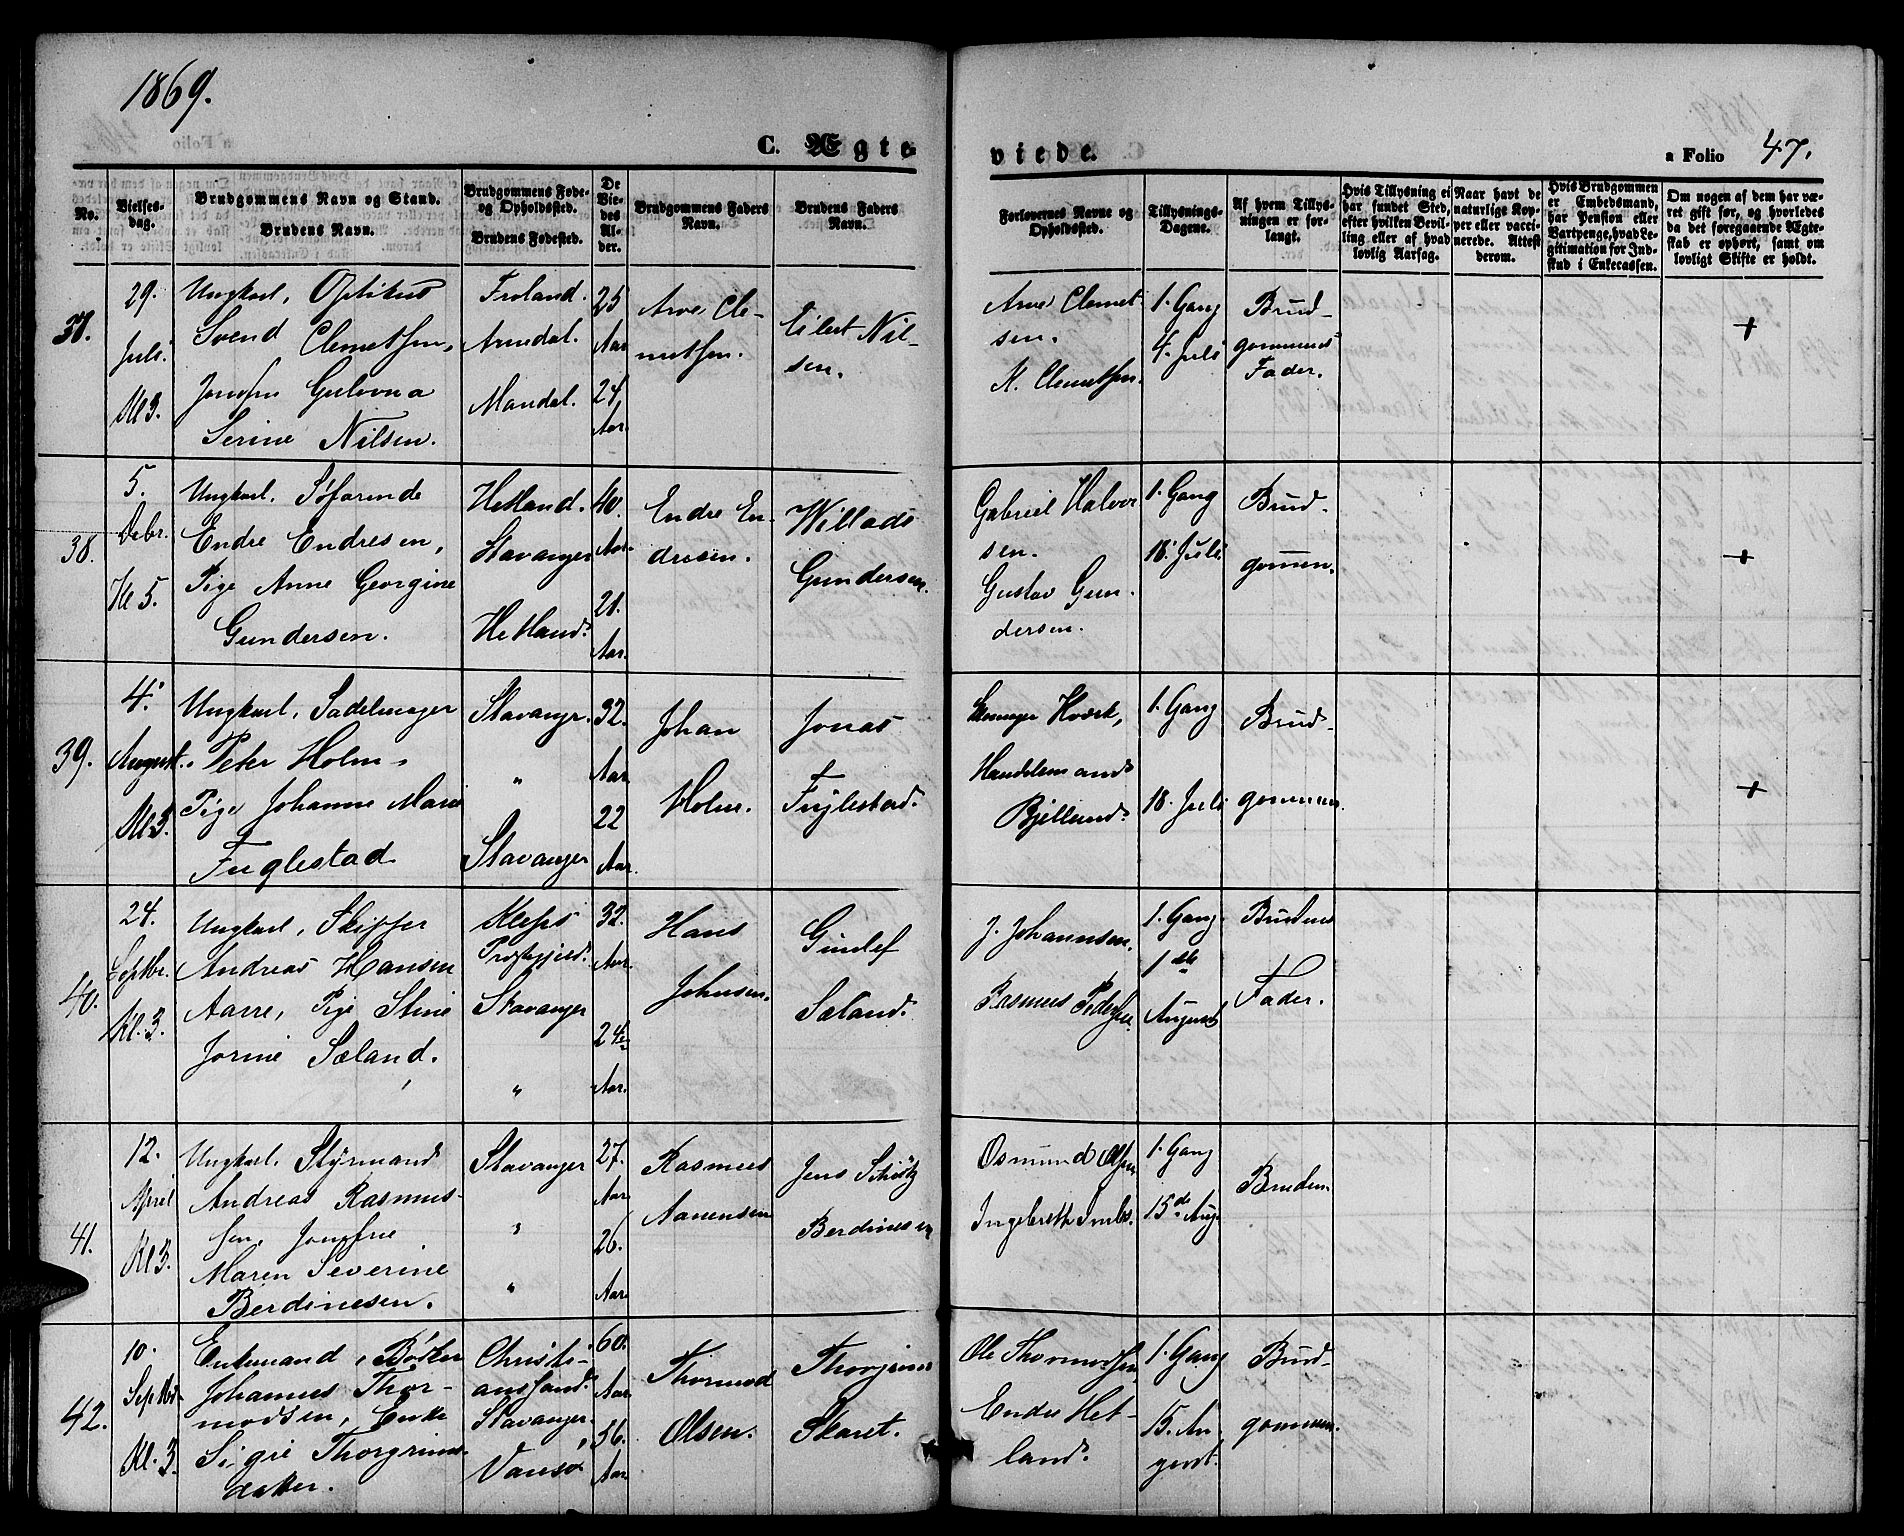 1869.
C. Ægte
viede.
a Folio 47.
No.
Vielses-
dag.
Brudgommens Navn og Stand.
Brudens Navn.
Brudgommens Føde-
og Opholdssted.
Brudens Fødested.
De
Vie-
des
Al-
der.
Brudgommens Faders
Navn.
Brudens Faders
Navn.
Forlovernes Navne og
Opholdssted.
Tillysnings-
Dagene.
Af hvem Tillys-
ningen er for-
langt.
Hvis Tillysning ei
har fundet Sted,
efter hvilken Bevil-
ling eller af hvad
lovlig Aarsag.
Naar havt de
naturlige Kop-
per eller vacci-
nerede. Attest
derom.
Hvis Brudgommen
er Embedsmand,
har Pension eller
Vartpenge, hvad Le-
gitimation for Ind-
skud i Enkecassen.
Om nogen af dem har væ-
ret gift før, og hvorledes
da det foregaaende Ægte-
skab er ophørt, samt om
lovligt Skifte er holdt.
37.
29.
Juli.
Kl 3.
Ungkarl, Optikus
Svend Clemetsen,
Jomfru Gulovna
Serine Nilsen.
Froland.
Arendal.
Mandal.
25
Aar
24,
Aar.
Arve Cle-
metsen.
Eilert Nil-
sen.
Arve Clemet-
sen.
K. Clemetsen.
1. Gang
4. Juli
Brud-
gommens
Fader.
+
38.
5.
Kl 5.
Ungkarl. Søfarende
Endre Endresen,
Pige Anne Georgine
Gundersen.
Hetland.
Stavanger
Hetland.
40.
Aar.
21.
Aar.
Endre En-
dresen.
Willads
Gundersen.
Gabriel Halvor
sen.
Gustav Gun-
dersen.
1. Gang
18. Juli
Brud-
gommen.
+
39.
4.
August.
Kl 3.
Ungkarl, Sadelmager
Peter Holm,
Pige Johanne Marie
Fuglestad
Stavanger.
"
Stavanger
32.
Aar
22
Aar.
Johan
Holm.
Jonas
Fuglestad.
Handelsmand
Bjelland.
1. Gang
18. Juli
Brud-
gommen.
+
40.
24.
Septbr.
Kl. 3.
Ungkarl, Skipper
Andreas Hansen
Aarre, Pige Stine
Jorine Sæland.
Kleps
Præstegjeld.
Stavanger
"
32.
Aar.
24
Aar.
Hans
Johnsen.
Gunlef
Sæland.
J. Johannsen.
Rasmus Pedersen.
1. Gang
1ste
August
Brudens
Fader.
41.
12.
April
Kl 3.
Ungkarl. Styrmand
Andreas Rasmus-
sen, Jomfru
Maren Severine
Berdinesen.
Stavanger
"
"
27.
Aar.
26.
Aar.
Rasmus
Aanensen
Jens Schiøtz
Berdinesen
Osmund Olsen
1. Gang
15de Aug.
Bruden.
42.
10.
Septbr.
Kl. 3.
Enkemand, Bødker
Johannes Thor-
modsen, Enke
Sigri Thorgrims-
datter.
Christi-
ansand.
Stavanger.
Vanse
60.
Aar
56.
Aar
Thormod
Olsen.
Thorgrim
Skaret.
Ole Thormodsen
Endre Het-
land.
1. Gang
15. Au-
gust.
Brud-
gommen.